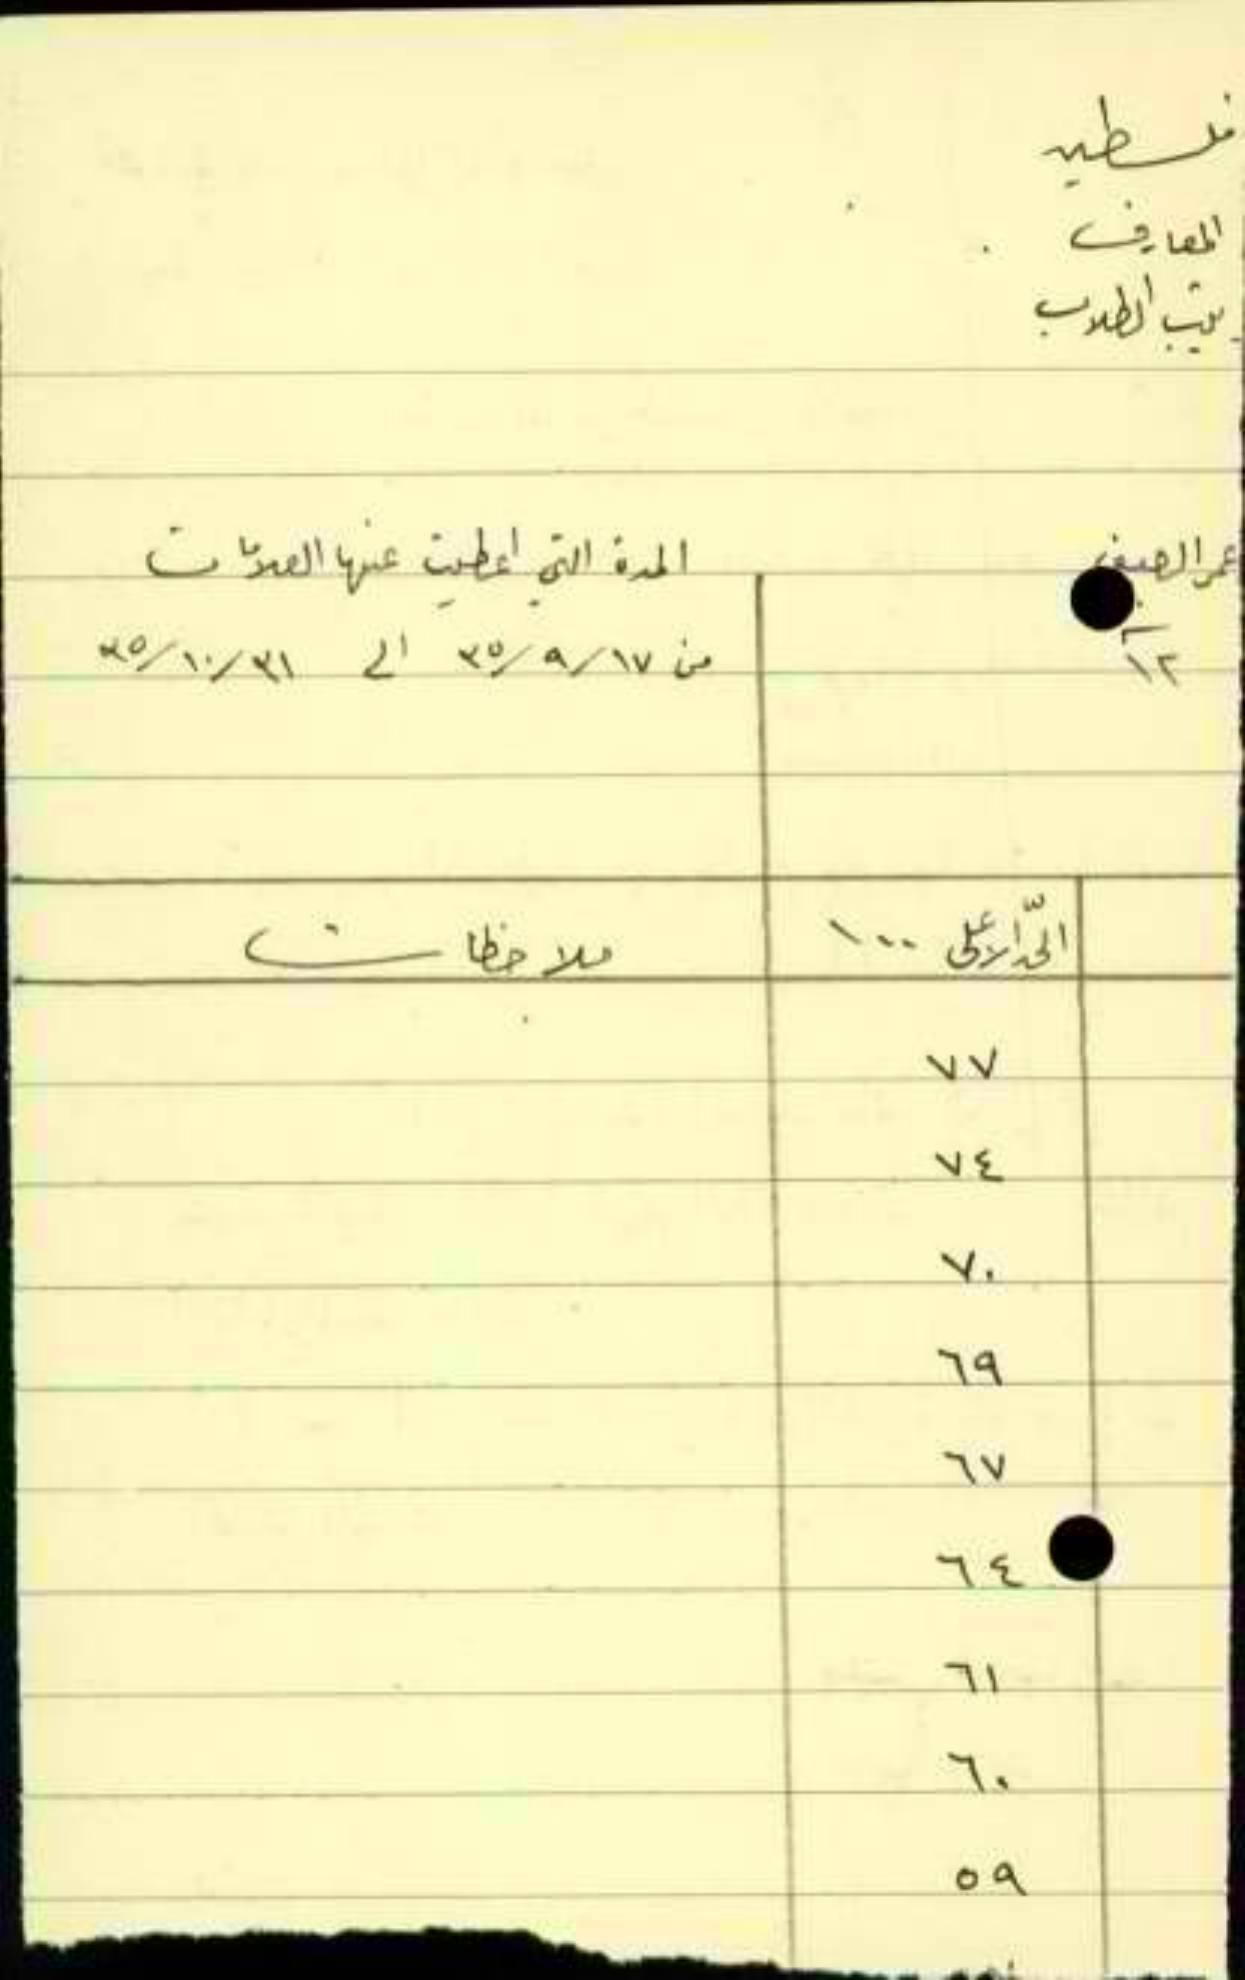 فلسطين
المعارف
الطلاب
عمر الصف المدة التي اعطيت عنها العلامات
١٢ من ٣٥/٩/١٧ الى ٣٥/١٠/٣١
الحد الاعلى ١٠٠ ملاحظات
٧٧
٧٤
٧٠
٦٩
٦٧
٦٤
٦١
٦٠
٥٩